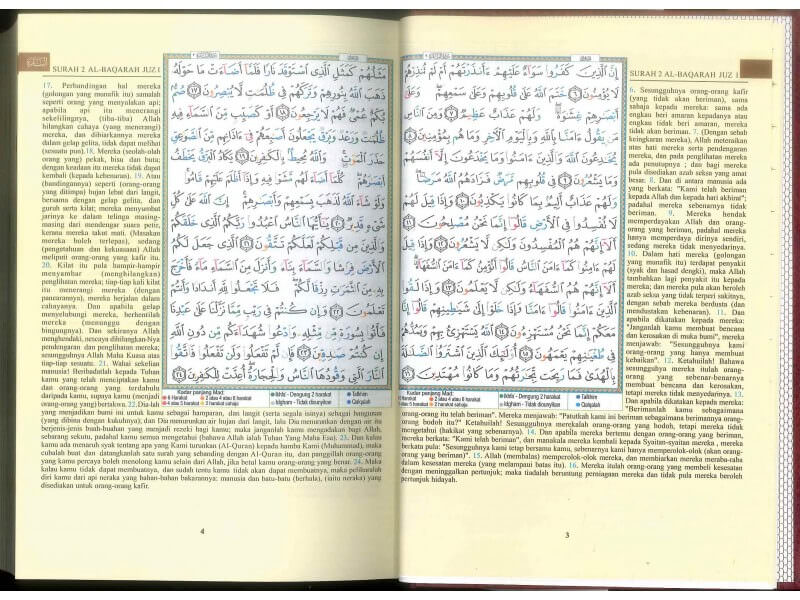 SURAH 2 AL-BAQARAH JUZ 1
إِنَّ الَّذِينَ كَفَرُوا سَوَاءٌ عَلَيْهِمْ ءَأَنذَرْتَهُمْ أَمْ لَمْ تُنذِرْهُمْ
لَا يُؤْمِنُونَ ٦ خَتَمَ اللَّهُ عَلَىٰ قُلُوبِهِمْ وَعَلَىٰ سَمْعِهِمْ وَعَلَىٰ
أَبْصَارِهِمْ غِشَاوَةٌ وَلَهُمْ عَذَابٌ عَظِيمٌ ٧ وَمِنَ النَّاسِ
مَن يَقُولُ ءَامَنَّا بِاللَّهِ وَبِالْيَوْمِ الْءَاخِرِ وَمَا هُم بِمُؤْمِنِينَ ٨
يُخَادِعُونَ اللَّهَ وَالَّذِينَ ءَامَنُوا وَمَا يَخْدَعُونَ إِلَّا أَنفُسَهُمْ
وَمَا يَشْعُرُونَ ٩ فِي قُلُوبِهِم مَّرَضٌ فَزَادَهُمُ اللَّهُ مَرَضًا
وَلَهُمْ عَذَابٌ أَلِيمٌ بِمَا كَانُوا يَكْذِبُونَ ١٠ وَإِذَا قِيلَ لَهُمْ
لَا تُفْسِدُوا فِي الْأَرْضِ قَالُوا إِنَّمَا نَحْنُ مُصْلِحُونَ ١١
أَلَا إِنَّهُمْ هُمُ الْمُفْسِدُونَ وَلَٰكِن لَّا يَشْعُرُونَ ١٢ وَإِذَا قِيلَ
لَهُمْ ءَامِنُوا كَمَا ءَامَنَ النَّاسُ قَالُوا أَنُؤْمِنُ كَمَا ءَامَنَ السُّفَهَاءُ
أَلَا إِنَّهُمْ هُمُ السُّفَهَاءُ وَلَٰكِن لَّا يَعْلَمُونَ ١٣ وَإِذَا لَقُوا
الَّذِينَ ءَامَنُوا قَالُوا ءَامَنَّا وَإِذَا خَلَوْا إِلَىٰ شَيَاطِينِهِمْ قَالُوا إِنَّا
مَعَكُمْ إِنَّمَا نَحْنُ مُسْتَهْزِءُونَ ١٤ اللَّهُ يَسْتَهْزِئُ بِهِمْ وَيَمُدُّهُمْ
فِي طُغْيَانِهِمْ يَعْمَهُونَ ١٥ أُولَٰئِكَ الَّذِينَ اشْتَرَوُا الضَّلَالَةَ
بِالْهُدَىٰ فَمَا رَبِحَت تِّجَارَتُهُمْ وَمَا كَانُوا مُهْتَدِينَ ١٦
6. Sesungguhnya orang-orang kafir
(yang tidak akan beriman), sama
sahaja kepada mereka: sama ada
engkau beri amaran kepadanya atau
engkau tidak beri amaran, mereka
tidak akan beriman. 7. (Dengan sebab
keingkaran mereka), Allah meteraikan
atas hati mereka serta pendengaran
mereka, dan pada penglihatan mereka
ada penutupnya ; dan bagi mereka
pula disediakan azab seksa yang amat
besar. 8. Dan di antara manusia ada
yang berkata: "Kami telah beriman
kepada Allah dan kepada hari akhirat";
padahal mereka sebenarnya tidak
beriman. 9. Mereka hendak
memperdayakan Allah dan orang-
orang yang beriman, padahal mereka
hanya memperdaya dirinya sendiri,
sedang mereka tidak menyedarinya.
10. Dalam hati mereka (golongan
yang munafik itu) terdapat penyakit
(syak dan hasad dengki), maka Allah
tambahkan lagi penyakit itu kepada
mereka; dan mereka pula akan beroleh
azab seksa yang tidak terperi sakitnya,
dengan sebab mereka berdusta (dan
mendustakan kebenaran). 11. Dan
apabila dikatakan kepada mereka:
"Janganlah kamu membuat bencana
dan kerosakan di muka bumi", mereka
menjawab: "Sesungguhnya kami
orang-orang yang hanya membuat
kebaikan". 12. Ketahuilah! Bahawa
sesungguhnya mereka itulah orang-
orang yang sebenar-benarnya
membuat bencana dan kerosakan,
tetapi mereka tidak menyedarinya. 13.
Dan apabila dikatakan kepada mereka:
"Berimanlah kamu sebagaimana
orang-orang itu telah beriman". Mereka menjawab: "Patutkah kami ini beriman sebagaimana berimannya orang-
orang bodoh itu?" Ketahuilah! Sesungguhnya merekalah orang-orang yang bodoh, tetapi mereka tidak
mengetahui (hakikat yang sebenarnya). 14. Dan apabila mereka bertemu dengan orang-orang yang beriman,
mereka berkata: "Kami telah beriman", dan manakala mereka kembali kepada Syaitan-syaitan mereka , mereka
berkata: "Sesungguhnya kami tetap bersama kamu, sebenarnya kami hanya memperolok-olok (akan orang-
orang yang beriman)". 15. Allah (membalas) memperolok-olok mereka, dan membiarkan mereka meraba-raba
dalam kesesatan mereka (yang melampaui batas itu). 16. Mereka itulah orang-orang yang membeli kesesatan
dengan meninggalkan pertunjuk; maka tiadalah beruntung perniagaan mereka dan tidak pula mereka beroleh
pertunjuk hidayah.
3
SURAH 2 AL-BAQARAH JUZ 1
مَثَلُهُمْ كَمَثَلِ الَّذِي اسْتَوْقَدَ نَارًا فَلَمَّا أَضَاءَتْ مَا حَوْلَهُ
ذَهَبَ اللَّهُ بِنُورِهِمْ وَتَرَكَهُمْ فِي ظُلُمَاتٍ لَّا يُبْصِرُونَ ١٧ صُمٌّ
بُكْمٌ عُمْيٌ فَهُمْ لَا يَرْجِعُونَ ١٨ أَوْ كَصَيِّبٍ مِّنَ السَّمَاءِ فِيهِ
ظُلُمَاتٌ وَرَعْدٌ وَبَرْقٌ يَجْعَلُونَ أَصَابِعَهُمْ فِي ءَاذَانِهِم مِّنَ الصَّوَاعِقِ
حَذَرَ الْمَوْتِ وَاللَّهُ مُحِيطٌ بِالْكَافِرِينَ ١٩ يَكَادُ الْبَرْقُ يَخْطَفُ
أَبْصَارَهُمْ كُلَّمَا أَضَاءَ لَهُم مَّشَوْا فِيهِ وَإِذَا أَظْلَمَ عَلَيْهِمْ قَامُوا
وَلَوْ شَاءَ اللَّهُ لَذَهَبَ بِسَمْعِهِمْ وَأَبْصَارِهِمْ إِنَّ اللَّهَ عَلَىٰ كُلِّ
شَيْءٍ قَدِيرٌ ٢٠ يَا أَيُّهَا النَّاسُ اعْبُدُوا رَبَّكُمُ الَّذِي خَلَقَكُمْ
وَالَّذِينَ مِن قَبْلِكُمْ لَعَلَّكُمْ تَتَّقُونَ ٢١ الَّذِي جَعَلَ لَكُمُ
الْأَرْضَ فِرَاشًا وَالسَّمَاءَ بِنَاءً وَأَنزَلَ مِنَ السَّمَاءِ مَاءً فَأَخْرَجَ
بِهِ مِنَ الثَّمَرَاتِ رِزْقًا لَّكُمْ فَلَا تَجْعَلُوا لِلَّهِ أَندَادًا وَأَنتُمْ
تَعْلَمُونَ ٢٢ وَإِن كُنتُمْ فِي رَيْبٍ مِّمَّا نَزَّلْنَا عَلَىٰ عَبْدِنَا
فَأْتُوا بِسُورَةٍ مِّن مِّثْلِهِ وَادْعُوا شُهَدَاءَكُم مِّن دُونِ اللَّهِ
إِن كُنتُمْ صَادِقِينَ ٢٣ فَإِن لَّمْ تَفْعَلُوا وَلَن تَفْعَلُوا فَاتَّقُوا
النَّارَ الَّتِي وَقُودُهَا النَّاسُ وَالْحِجَارَةُ أُعِدَّتْ لِلْكَافِرِينَ ٢٤
17. Perbandingan hal mereka
(golongan yang munafik itu) samalah
seperti orang yang menyalakan api;
apabila api itu menerangi
sekelilingnya, (tiba-tiba) Allah
hilangkan cahaya (yang menerangi)
mereka, dan dibiarkannya mereka
dalam gelap gelita, tidak dapat melihat
(sesuatu pun).18. Mereka (seolah-olah
orang yang) pekak, bisu dan buta;
dengan keadaan itu mereka tidak dapat
kembali (kepada kebenaran). 19. Atau
(bandingannya) seperti (orang-orang
yang ditimpa) hujan lebat dari langit,
bersama dengan gelap gelita, dan
guruh serta kilat; mereka menyumbat
jarinya ke dalam telinga masing-
masing dari mendengar suara petir,
kerana mereka takut mati. (Masakan
mereka boleh terlepas), sedang
(pengetahuan dan kekuasaan) Allah
meliputi orang-orang yang kafir itu.
20. Kilat itu pula hampir-hampir
menyambar (menghilangkan)
penglihatan mereka; tiap-tiap kali kilat
itu menerangi mereka (dengan
pancarannya), mereka berjalan dalam
cahayanya. Dan apabila gelap
menyelubungi mereka, berhentilah
mereka (menunggu dengan
bingungnya). Dan sekiranya Allah
menghendaki, nescaya dihilangkan-Nya
pendengaran dan penglihatan mereka;
sesungguhnya Allah Maha Kuasa atas
tiap-tiap sesuatu. 21. Wahai sekelian
manusia! Beribadatlah kepada Tuhan
kamu yang telah menciptakan kamu
dan orang-orang yang terdahulu
daripada kamu, supaya kamu (menjadi
orang-orang yang) bertakwa. 22.Dia-lah
yang menjadikan bumi ini untuk kamu sebagai hamparan, dan langit (serta segala isinya) sebagai bangunan
(yang dibina dengan kukuhnya); dan Dia menurunkan air hujan dari langit, lalu Dia menumbuhkan dengan air itu
berjenis-jenis buah-buahan yang menjadi rezeki bagi kamu; maka janganlah kamu mengadakan bagi Allah,
sebarang sekutu, padahal kamu semua mengetahui (bahawa Allah ialah Tuhan Yang Maha Esa). 23. Dan kalau
kamu ada menaruh syak tentang apa yang Kami turunkan (Al-Quran) kepada hamba Kami (Muhammad), maka
cubalah buat dan datangkanlah satu surah yang sebanding dengan Al-Quran itu, dan panggillah orang-orang
yang kamu percaya boleh menolong kamu selain dari Allah, jika betul kamu orang-orang yang benar. 24. Maka
kalau kamu tidak dapat membuatnya, dan sudah tentu kamu tidak dapat membuatnya, maka peliharalah
diri kamu dari api neraka yang bahan-bahan bakarannya: manusia dan batu-batu (berhala), (iaitu neraka) yang
disediakan untuk orang-orang kafir.
4